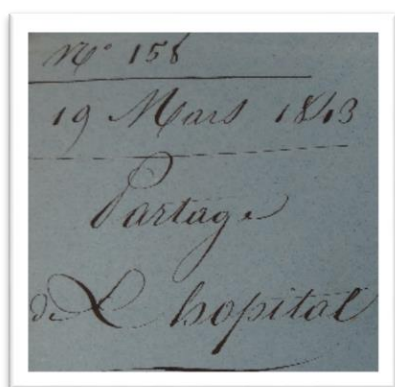 N° 158
19 Mars 1843
Partage
de L hopital